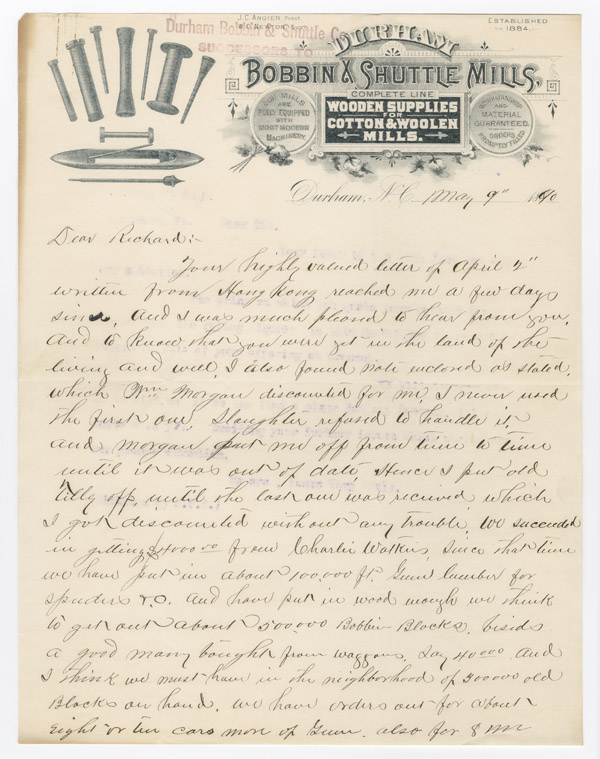 J.C. ANGIER Prest.
Durham Bobbin & Shuttle Co.
SUCCESSORS TO
ESTABLISHED
1884
DURHAM
BOBBIN & SHUTTLE MILLS,
COMPLETE LINE
WOODEN SUPPLIES
FOR
COTTON & WOOLEN
MILLS.
OUR MILLS
ARE
FULLY EQUIPPED
WITH
MOST MODERN
MACHINERY.
WORKMANSHIP
AND
MATERIAL
GUARANTEED.
ORDERS
PROMPTLY FILLED
Durham, N.C. May 9"
Dear Richard:-
Your highly valued letter of April 4"
written from Hong Kong reached me a few days
since, and I was much pleased to hear from you,
and to know that you were yet in the land of the
living and well, I also found note enclosed as stated,
which Wm Morgan discounted for me, I never used
the first one, Slaughter refused to handle it,
and Morgan put me off from time to time
until it was out of date Hence I put old
Tilly off, until the last one was recieved which
I got discounted without any trouble, We succeeded
in getting $4000.00 from Charlie Watkins, Since that time
we have put in about 100,000 ft. Gum lumber for
and have put in wood enough we think
to get out about 500000 Bobbin Blocks, besids
a good many bought from waggons, Say 40000 and
I think we must have in the neighborhood of 300000 old
Blocks on hand, we have orders out for about
eight or ten cars more of Gum, also for